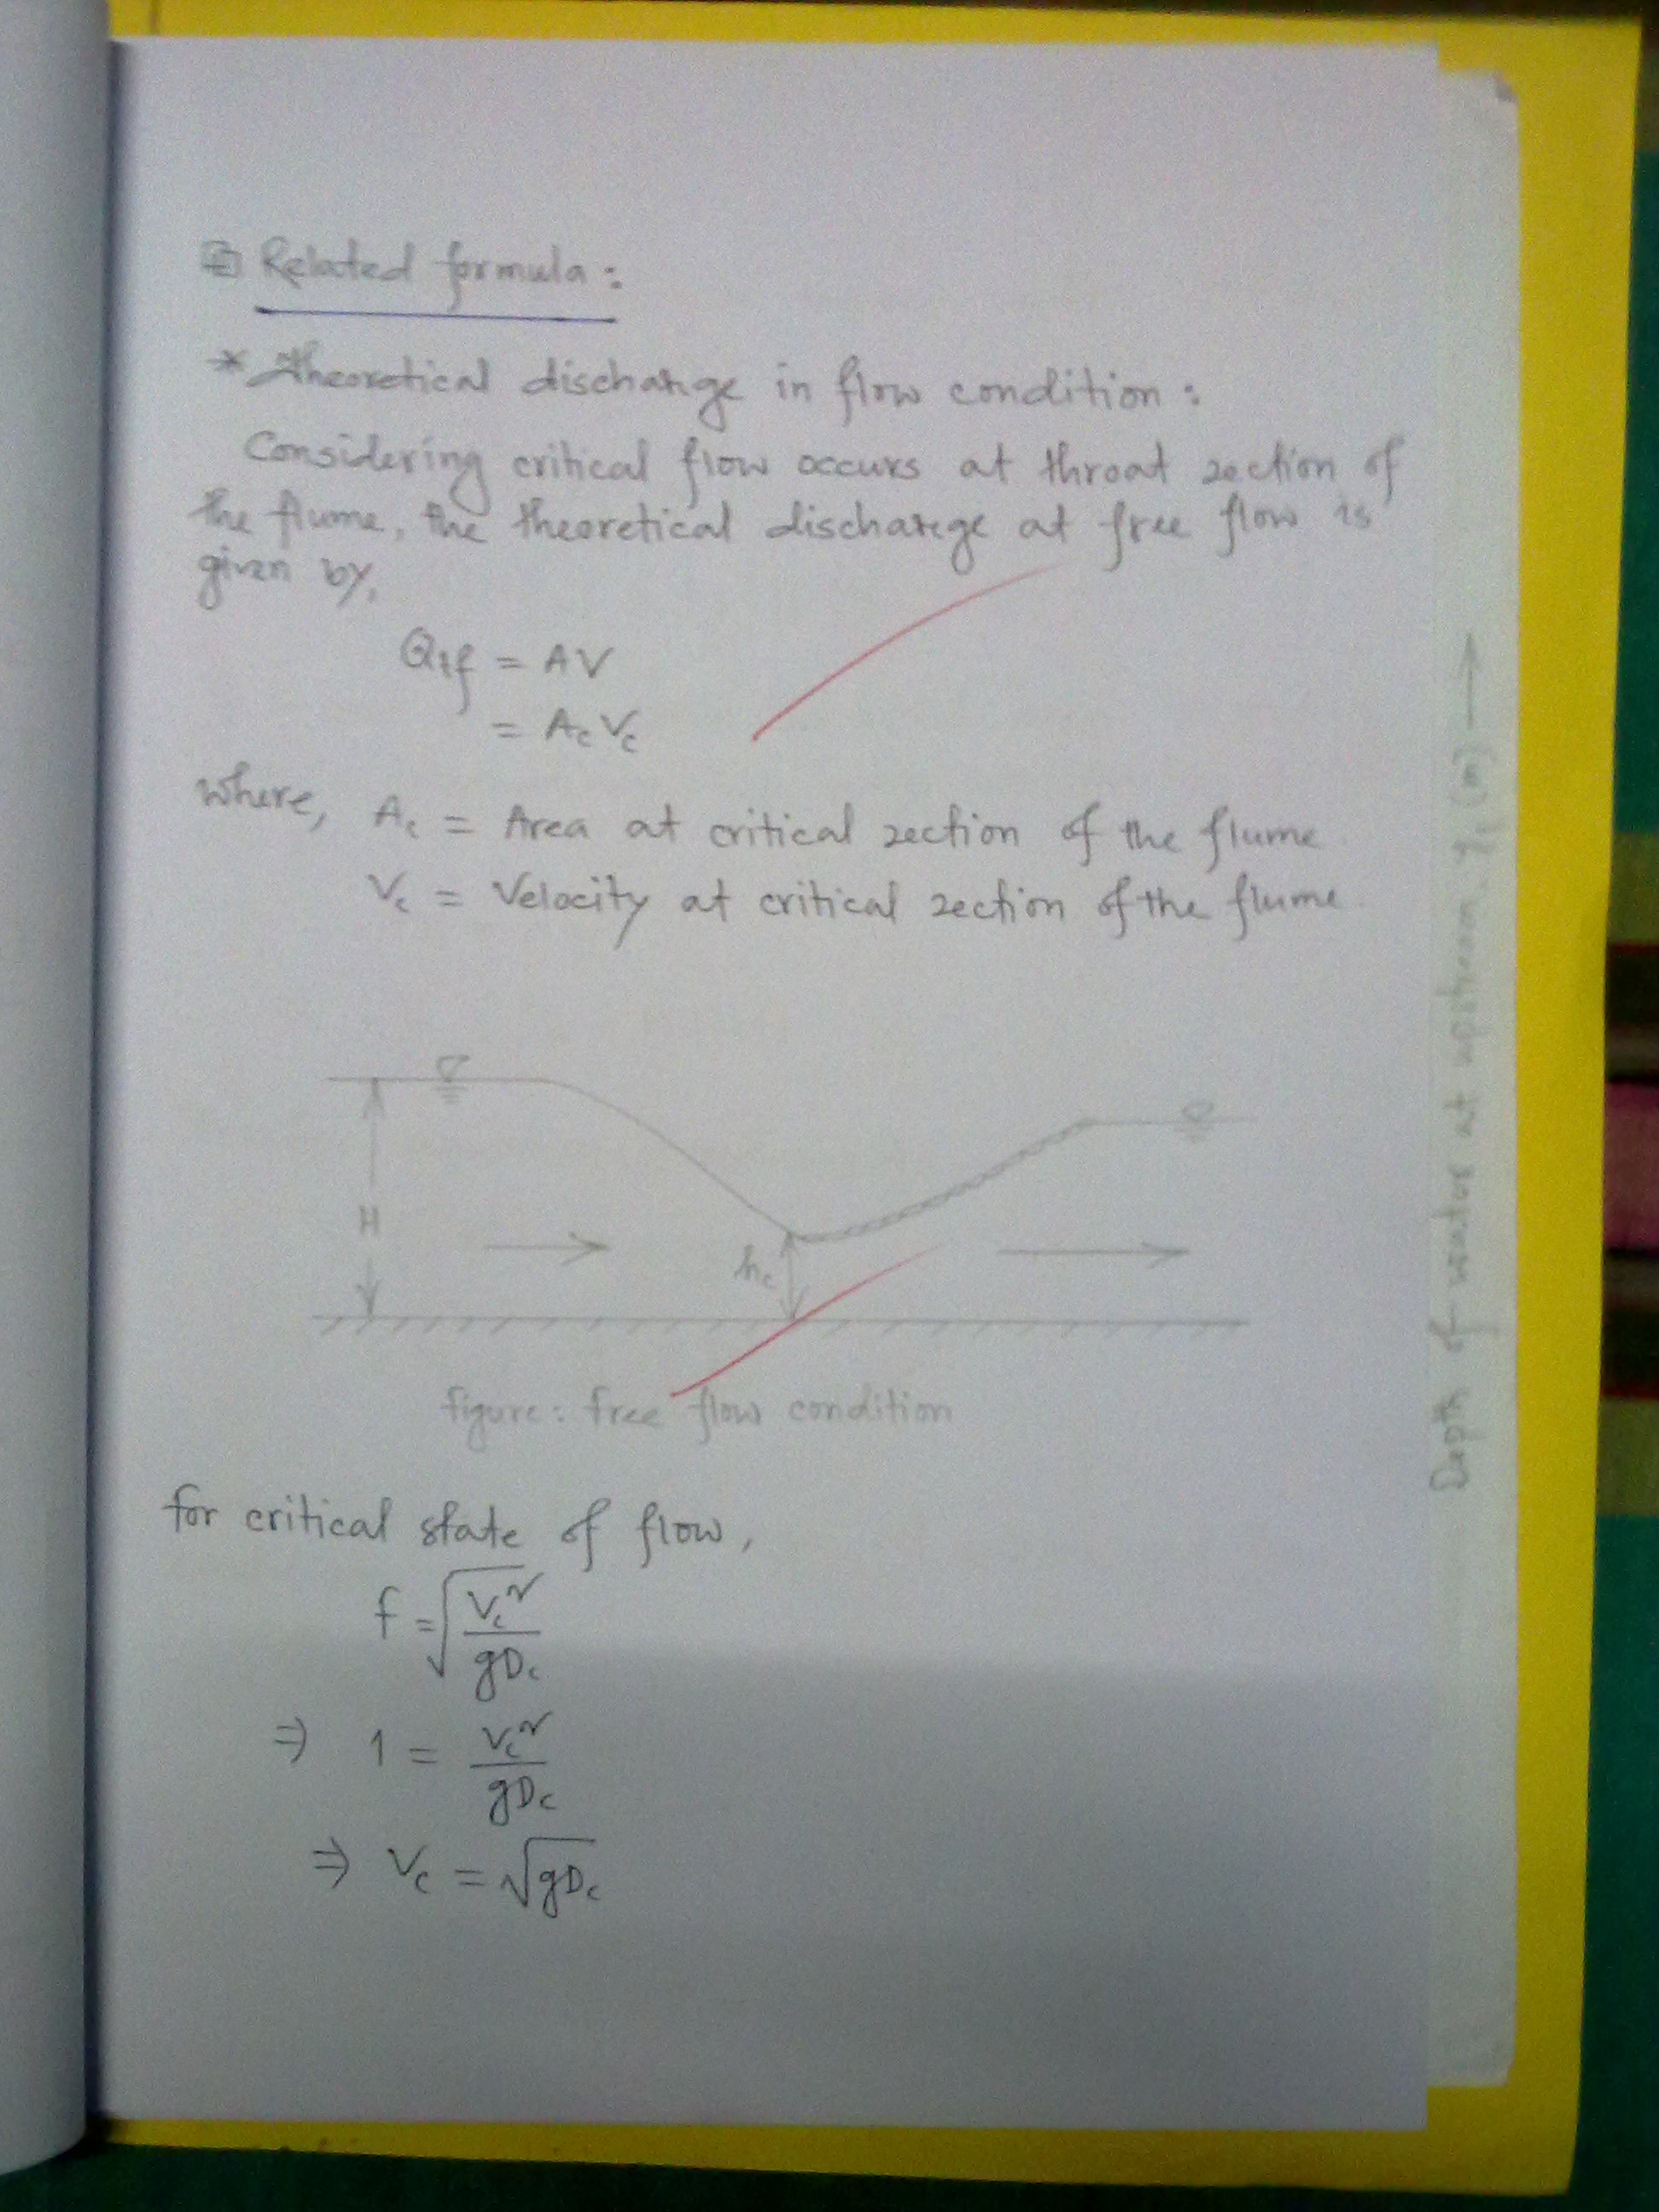 Related formula:
* Theoretical discharge in flow condition:
Considering critical flow occurs at throat section of
the flume, the theoretical discharge at free flow is
given by,
Qtf = AV
= Ac Vc
where, Ac = Area at critical section of the flume
Vc = Velocity at critical section of the flume.
H
hc
figure: free flow condition
for critical state of flow,
f = √(Vc²/gDc)
⇒ 1 = Vc²/gDc
⇒ Vc = √gDc
Depth of water at upstream, y1 (m) →